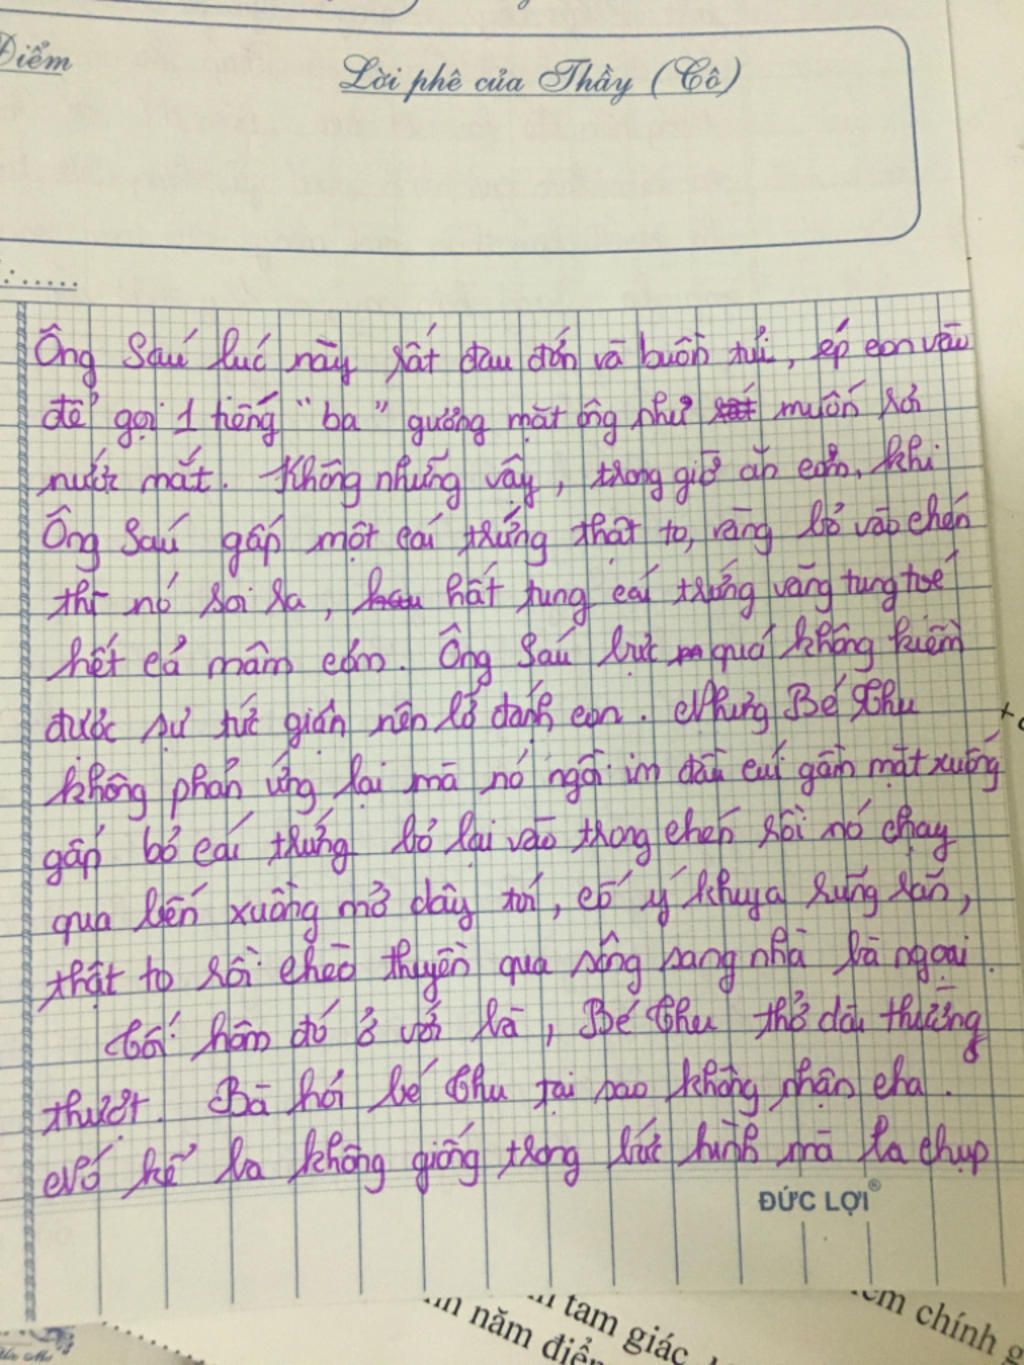 Điểm
Lời phê của Thầy (Cô)
Ông Sáu lúc này rất đau đớn và buồn tủi, ép con vào
để gọi 1 tiếng "ba" gương mặt ông như muốn rơi
nước mắt. Không những vậy, trong giờ ăn cơm, khi
Ông Sáu gấp một cái trứng thật to, vàng bỏ vào chén
thì nó soi ra, hất tung cái trứng vàng tung toé
hết cả mâm cơm. Ông Sáu bực quá không kiềm
được sự tức giận nên lỡ đánh con. Nhưng Bé Thu
không phản ứng lại mà nó ngồi im đầu cúi gầm mặt xuống
gấp bỏ cái trứng bỏ lại vào trong chén rồi nó chạy
qua bến xuồng mở dây tới, cố ý khuya rung rần,
thật to rồi chèo thuyền qua sông sang nhà bà ngoại.
Tối hôm đó ở với bà, Bé Thu thở dài thường
thượt. Bà hỏi bé Thu tại sao không nhận cha.
Nó kể ba không giống trong bức hình mà ba chụp
ĐỨC LỢI®
tam giác
năm điểm
chính g